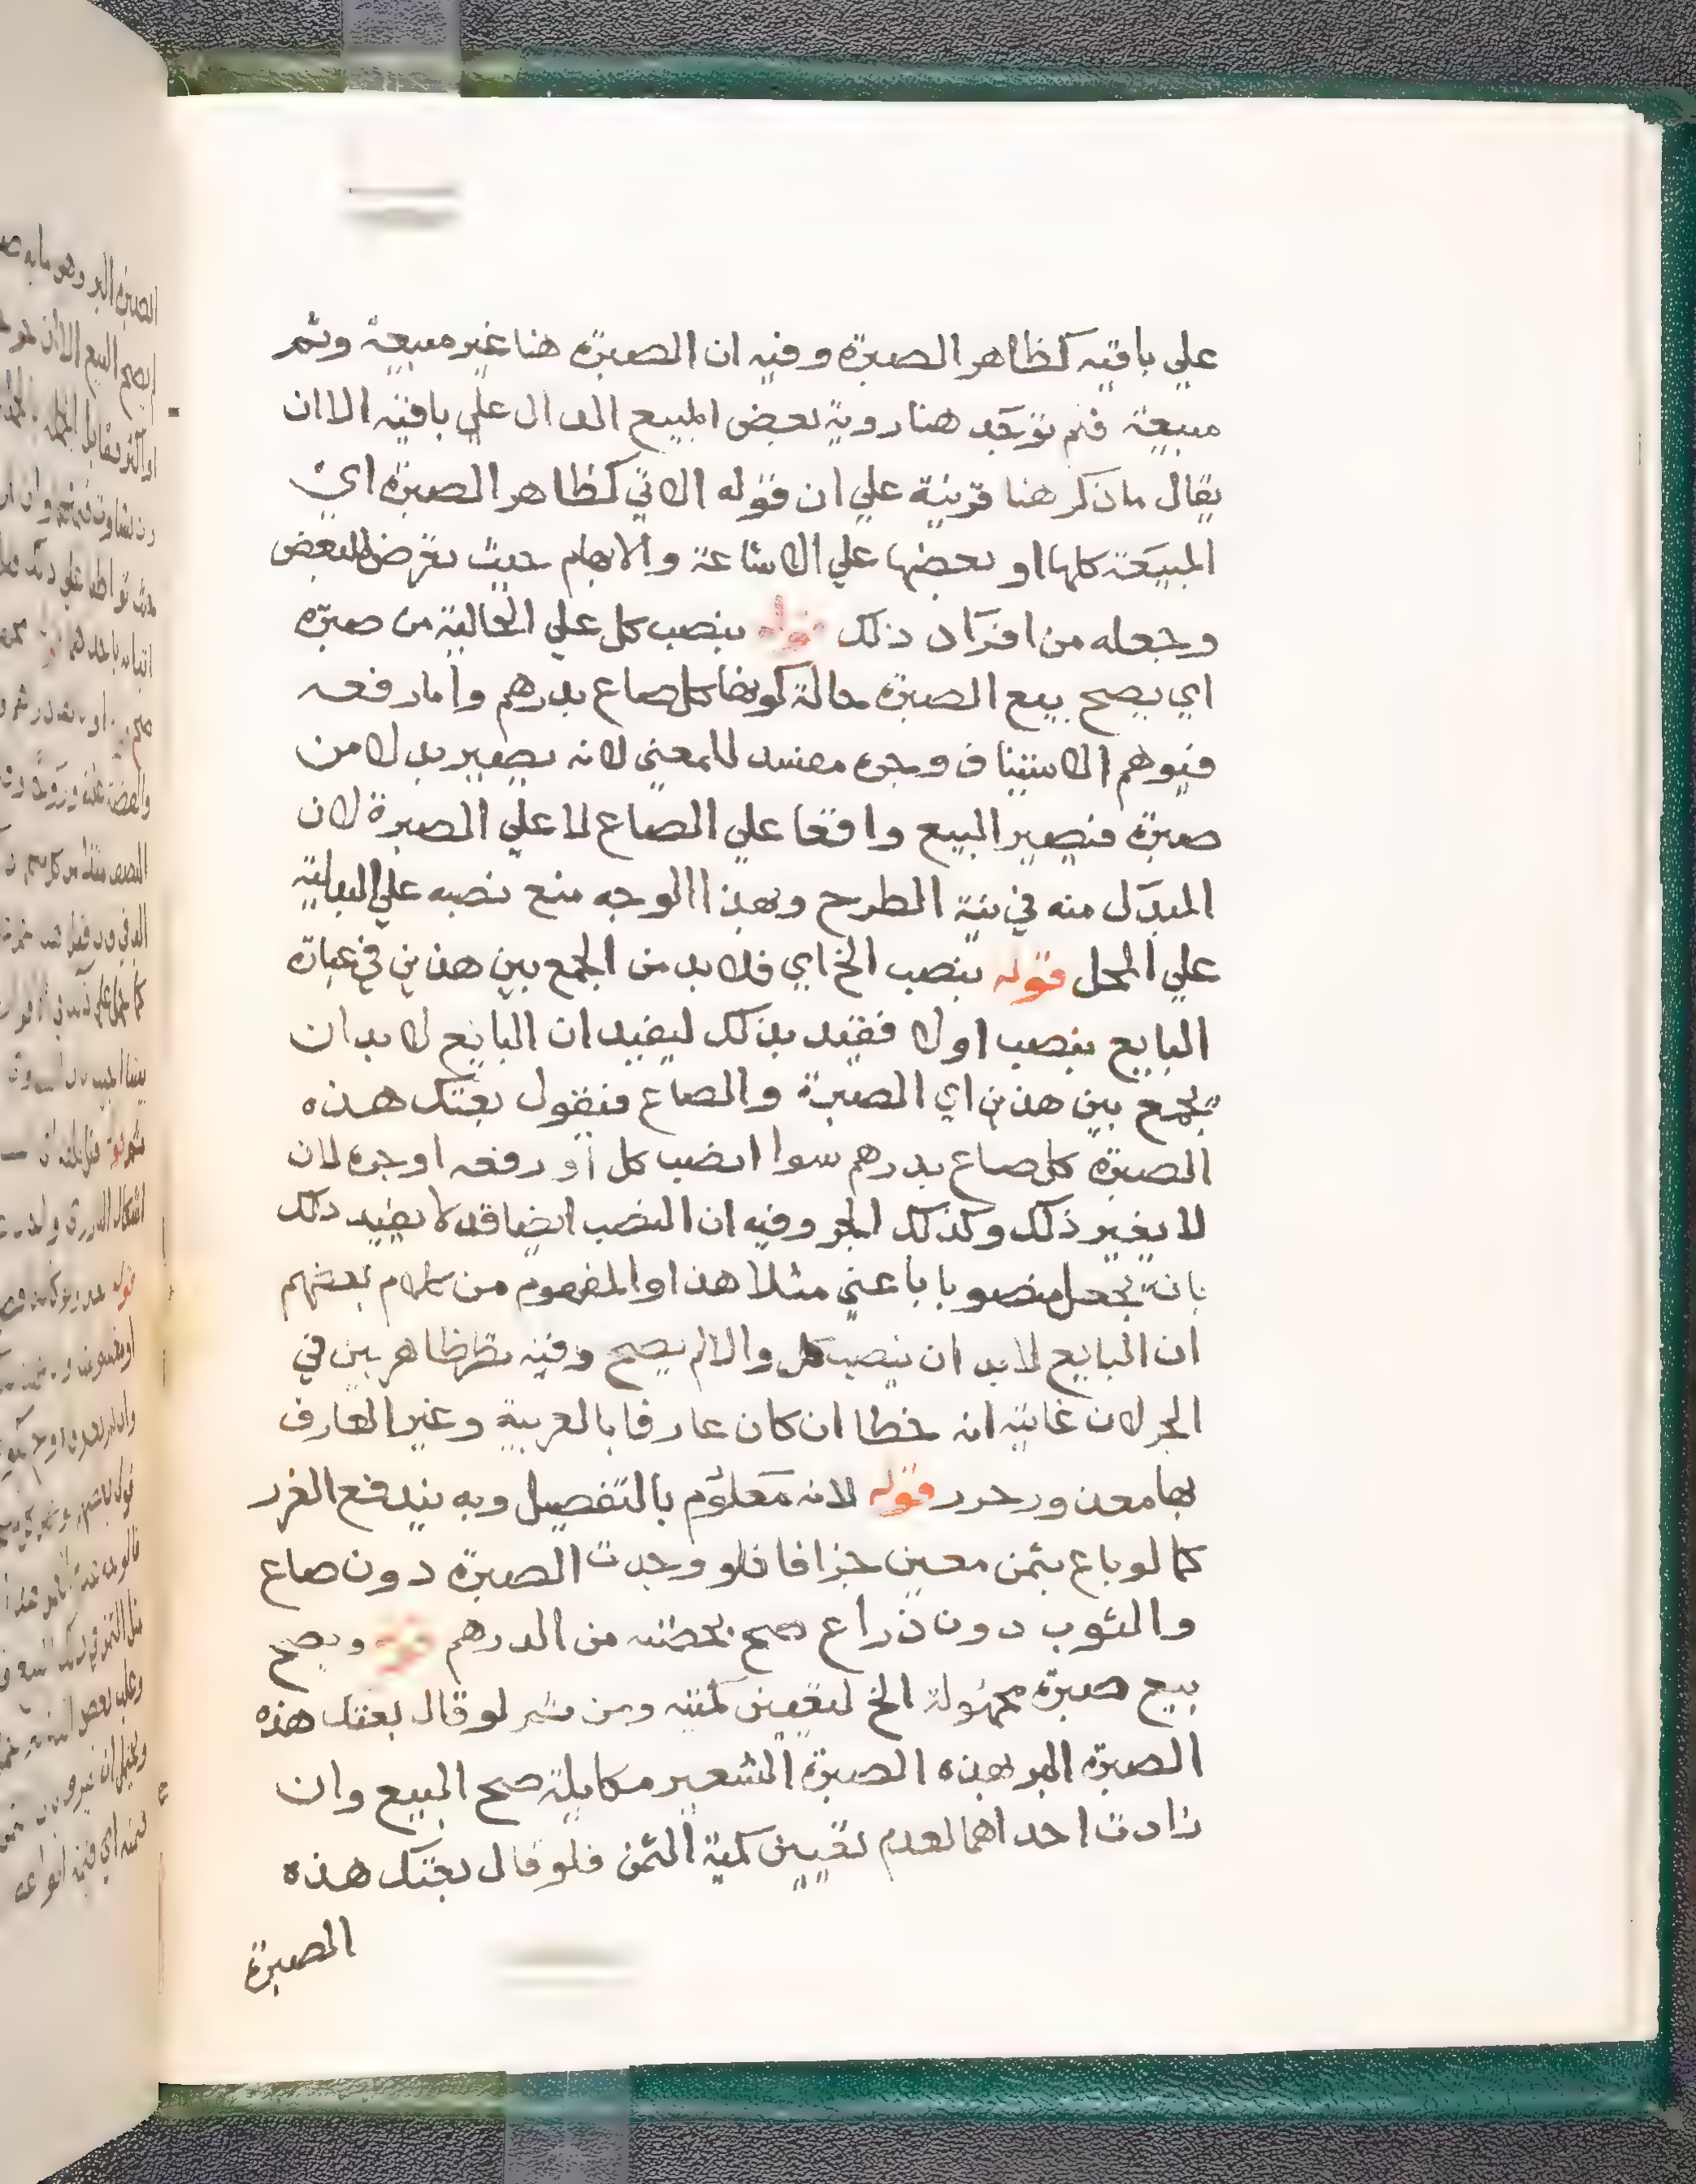 علي باقيه كظاهر الصبرة وفيه ان الصبرة هنا غير مبيعة وثم
مبيعة فلم توجد هنا روية بعض المبيع الدال علي باقيه الا ان
يقال ما ذكر هنا قرينة علي ان قوله الاتي كظاهر الصبرة اي
المبيعة كلها او بعضها علي الاشاعة والابهام حيث تعرض للبعض
وجعله من افراد ذلك قوله بنصب كل علي الحالية من صبرة
اي يصح بيع الصبرة حالة كونها كل صاع بدرهم واما رفعه
فيوهم الاستيناف وجره مفسد للمعني لانه يصير بدلا من
صبرة فيصير المبيع واقعا علي الصاع لا علي الصبرة لان
المبدل منه في نية الطرح وبهذا الوجه منع نصبه علي البدلية
علي المحل قوله بنصب الخ اي فلا بد من الجمع بين هذين في عبارة
البايع بنصب اولا فقيد بذلك ليفيد ان البايع لا بد ان
يجمع بين هذين اي الصبرة والصاع فيقول بعتك هذه
الصبرة كل صاع بدرهم سوا انصب كل او رفعه او جره لان
لا يغير ذلك وكذلك الجر وفيه ان النصب ايضا قد لا يفيد ذلك
بانه يجعل منصوبا باعني مثلا هذا والمفهوم من كلام بعضهم
ان البايع لا بد ان ينصب كل والا لم يصح وفيه نظر ظاهر بين في
الجر لان غايته انه خطا ان كان عارفا بالعربية وغير العارف
بها معذور حرر قوله لانه معلوم بالتفصيل وبه يندفع الغرر
كما لو باع بثمن معين جزافا فلو وجدت الصبرة دون صاع
والثوب دون ذراع صح بحصته من الدرهم قوله ويصح
بيع صبرة مجهولة الخ لتعيين كميته ومن ثم لو قال بعتك هذه
الصبرة البر بهذه الصبرة الشعير مكايلة صح المبيع وان
زادت احداهما لعدم تعيين كمية الثمن فلو قال بعتك هذه
الصبرة